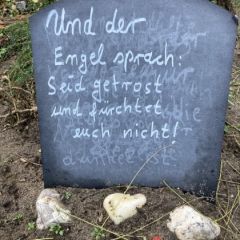 Und der
Engel sprach:
Seid getrost
und fürchtet
euch nicht!